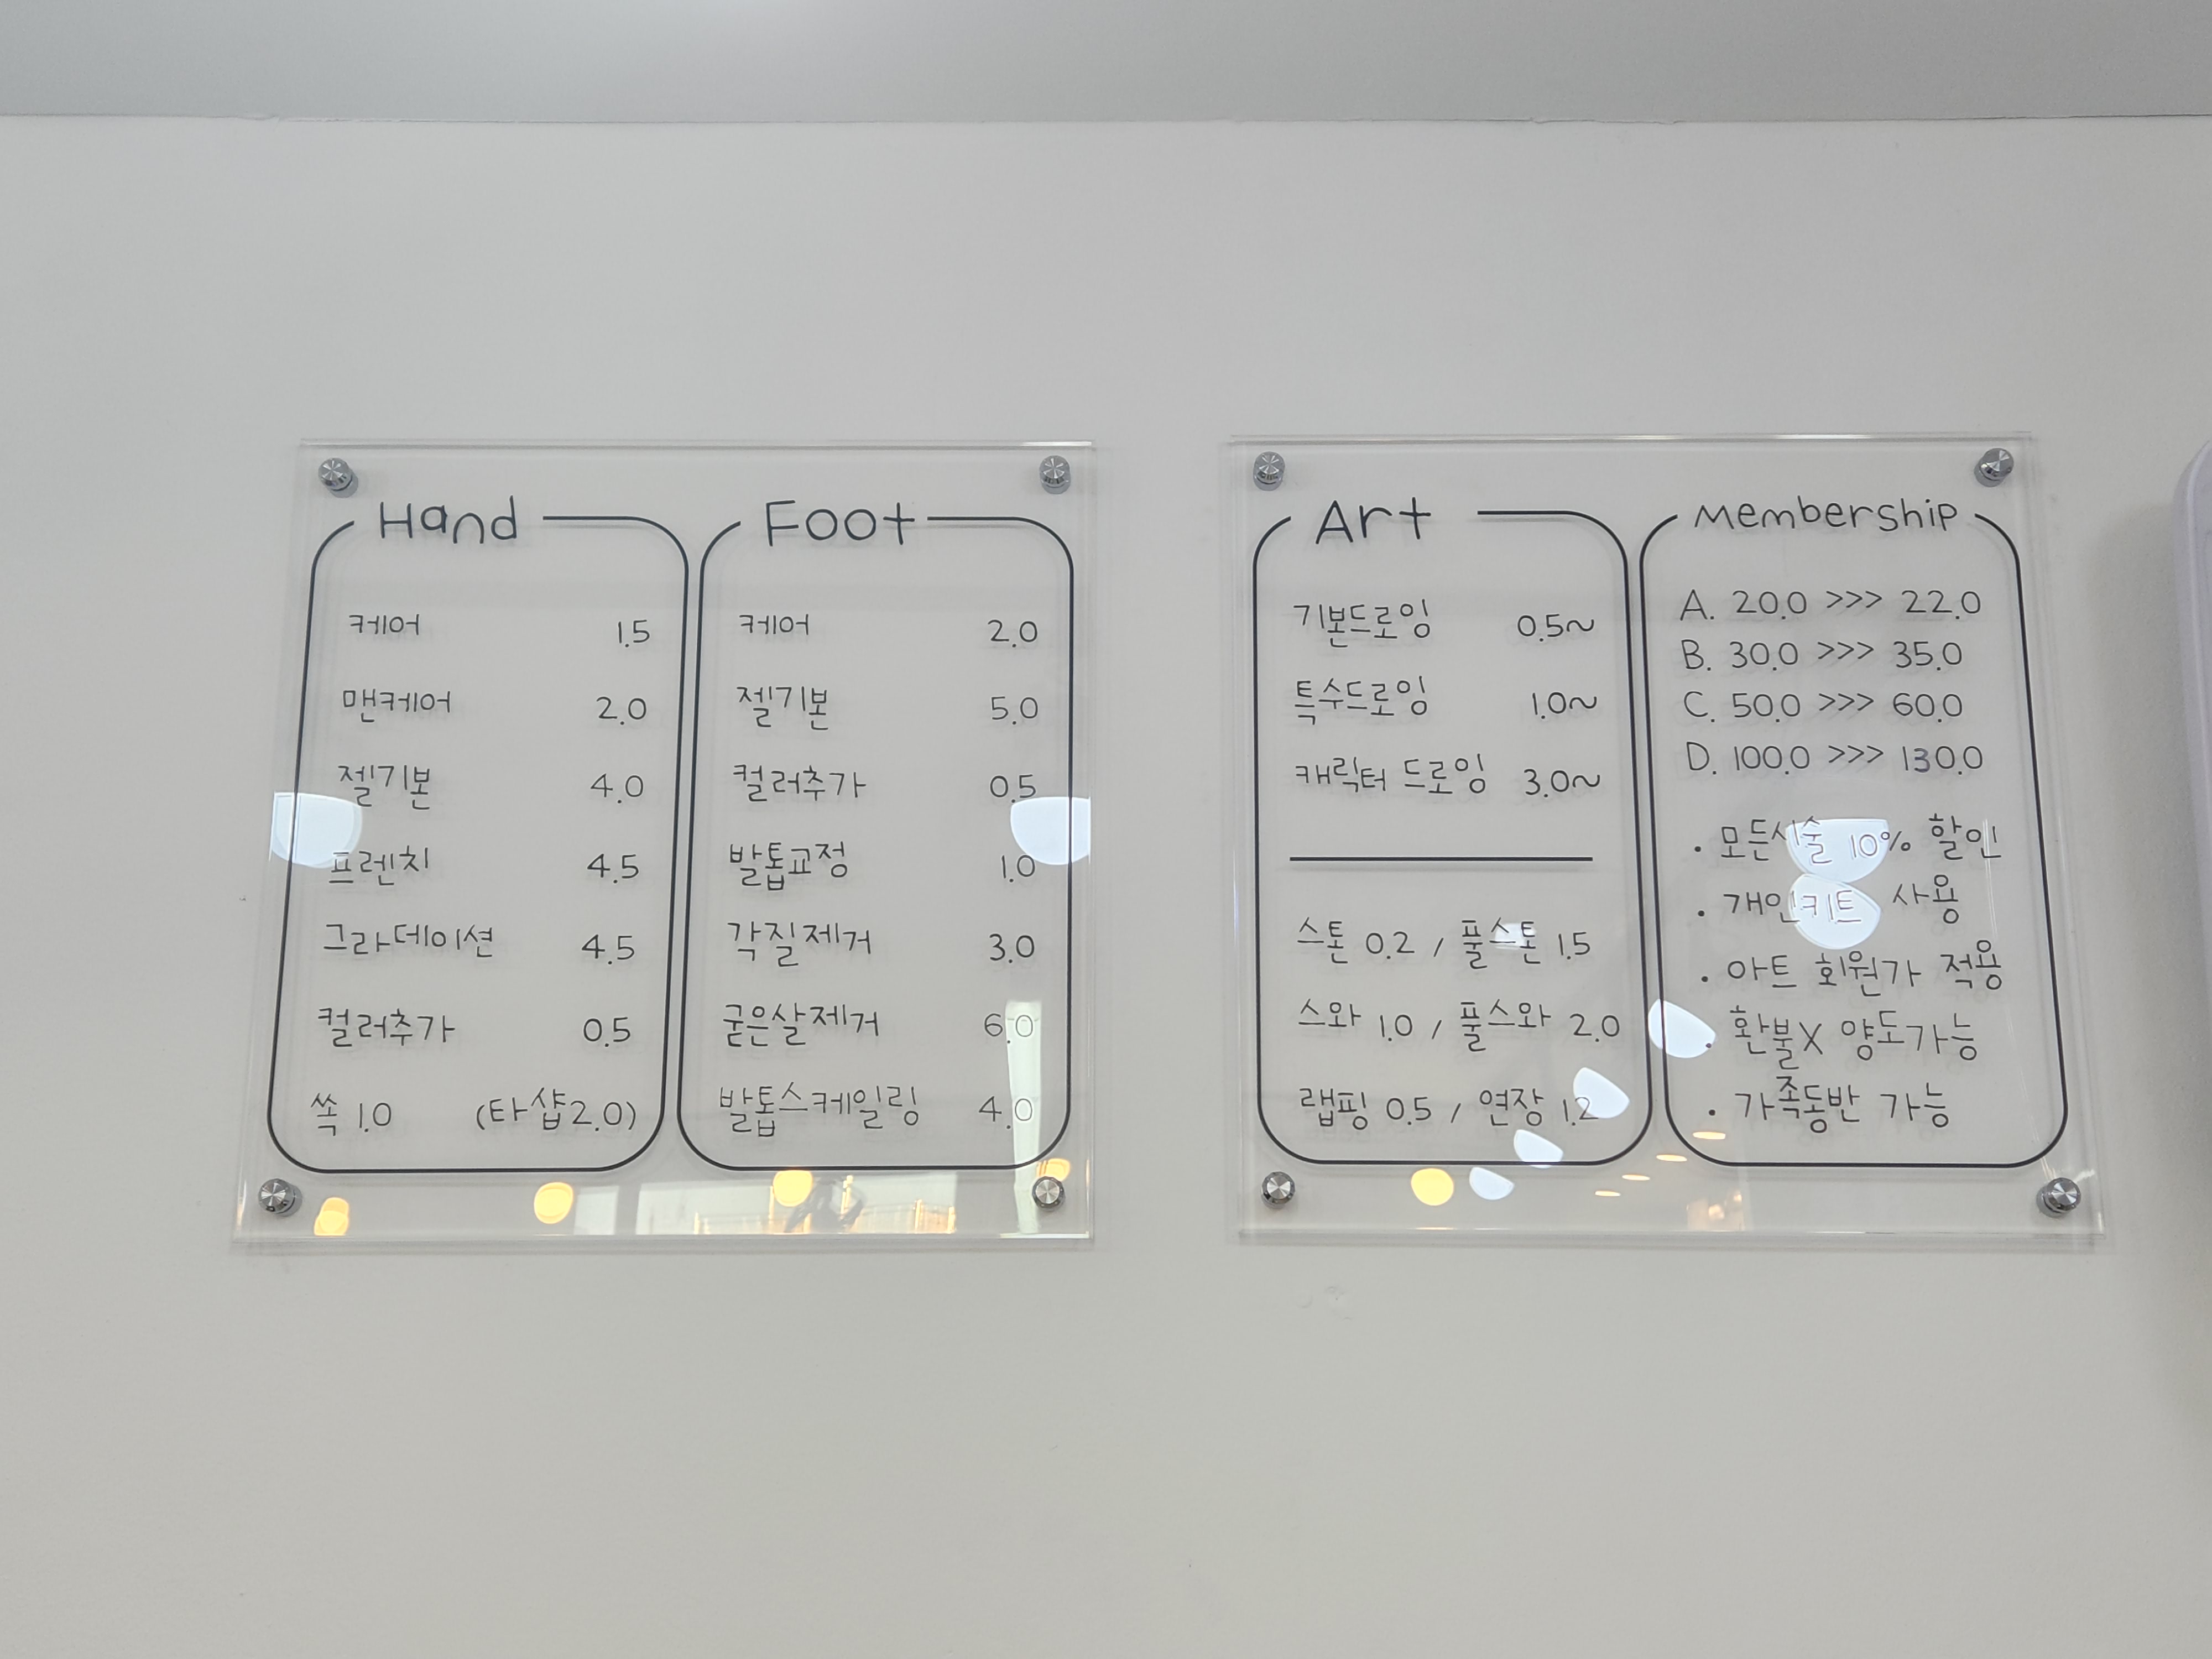 Hand
케어 1.5
맨케어 2.0
젤기본 4.0
프렌치 4.5
그라데이션 4.5
컬러추가 0.5
쏙 1.0 (타샵2.0)
Foot
케어 2.0
젤기본 5.0
컬러추가 0.5
발톱교정 1.0
각질제거 3.0
굳은살제거 6.0
발톱스케일링 4.0
Art
기본드로잉 0.5~
특수드로잉 1.0~
캐릭터 드로잉 3.0~
스톤 0.2 / 풀스톤 1.5
스와 1.0 / 풀스와 2.0
랩핑 0.5 / 연장 1.2
Membership
A. 20.0 >>> 22.0
B. 30.0 >>> 35.0
C. 50.0 >>> 60.0
D. 100.0 >>> 130.0
· 모든시술 10% 할인
· 개인키트 사용
· 아트 회원가 적용
· 환불X 양도가능
· 가족동반 가능